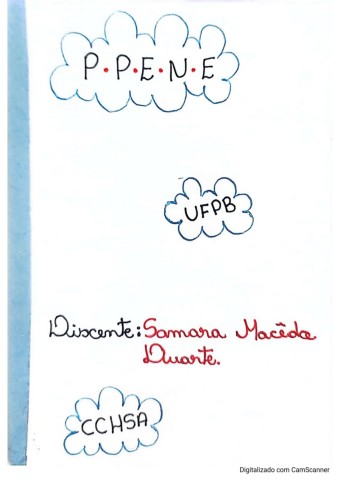 P.P.E.N.E
UFPB
Discente: Samara Macêdo
Duarte.
CCHSA
Digitalizado com CamScanner